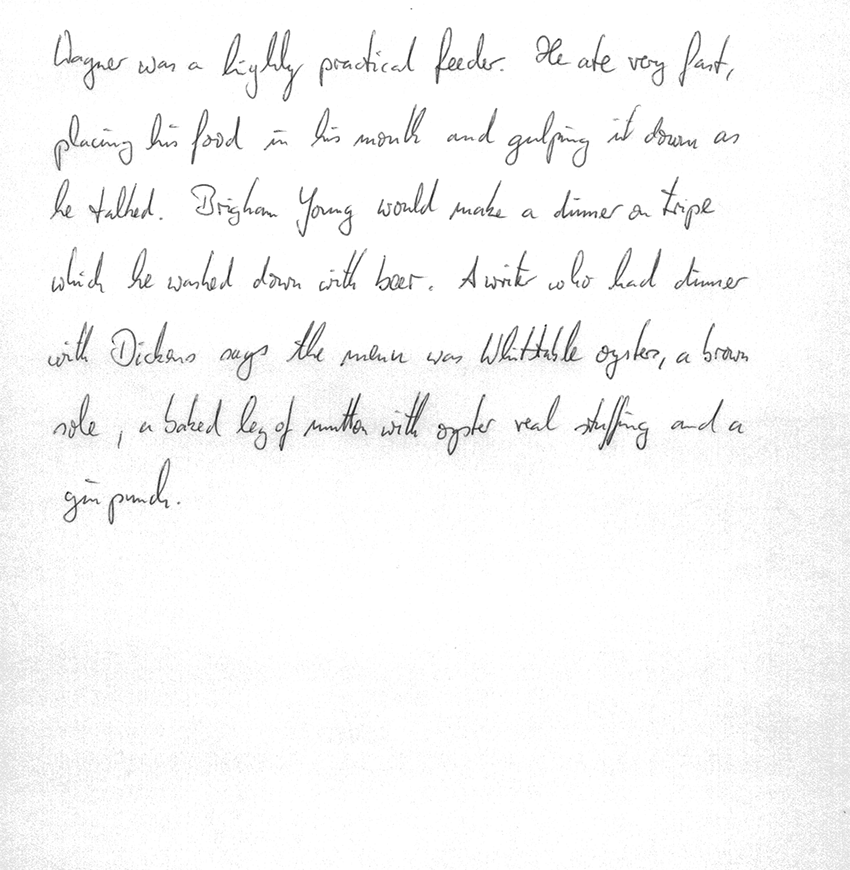 Wagner was a highly practical feeder. He ate very fast,
placing his food in his mouth and gulping it down as
he talked. Brigham Young would make a dinner on tripe
which he washed down with beer. A writer who had dinner
with Dickens says the menu was Whittable oysters, a brown
sole, a baked leg of mutton with oyster veal stuffing and a
gin punch.